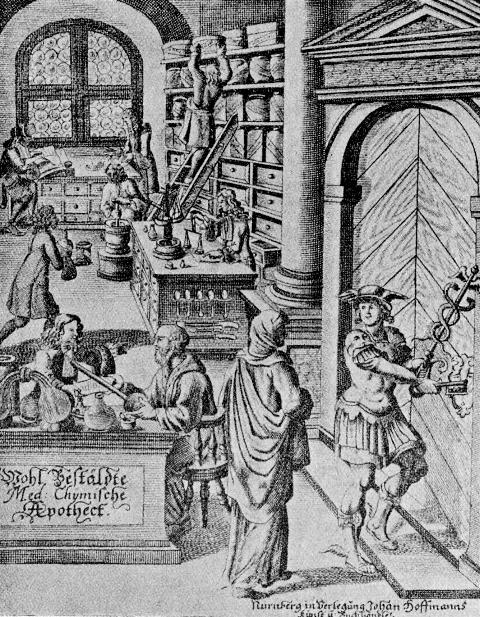 Wohl Bestäldte
Med. Chymische
Apotheck.
Nürnberg in Verlegung Johan Hoffmanns
Kunst u. Buchhändler.